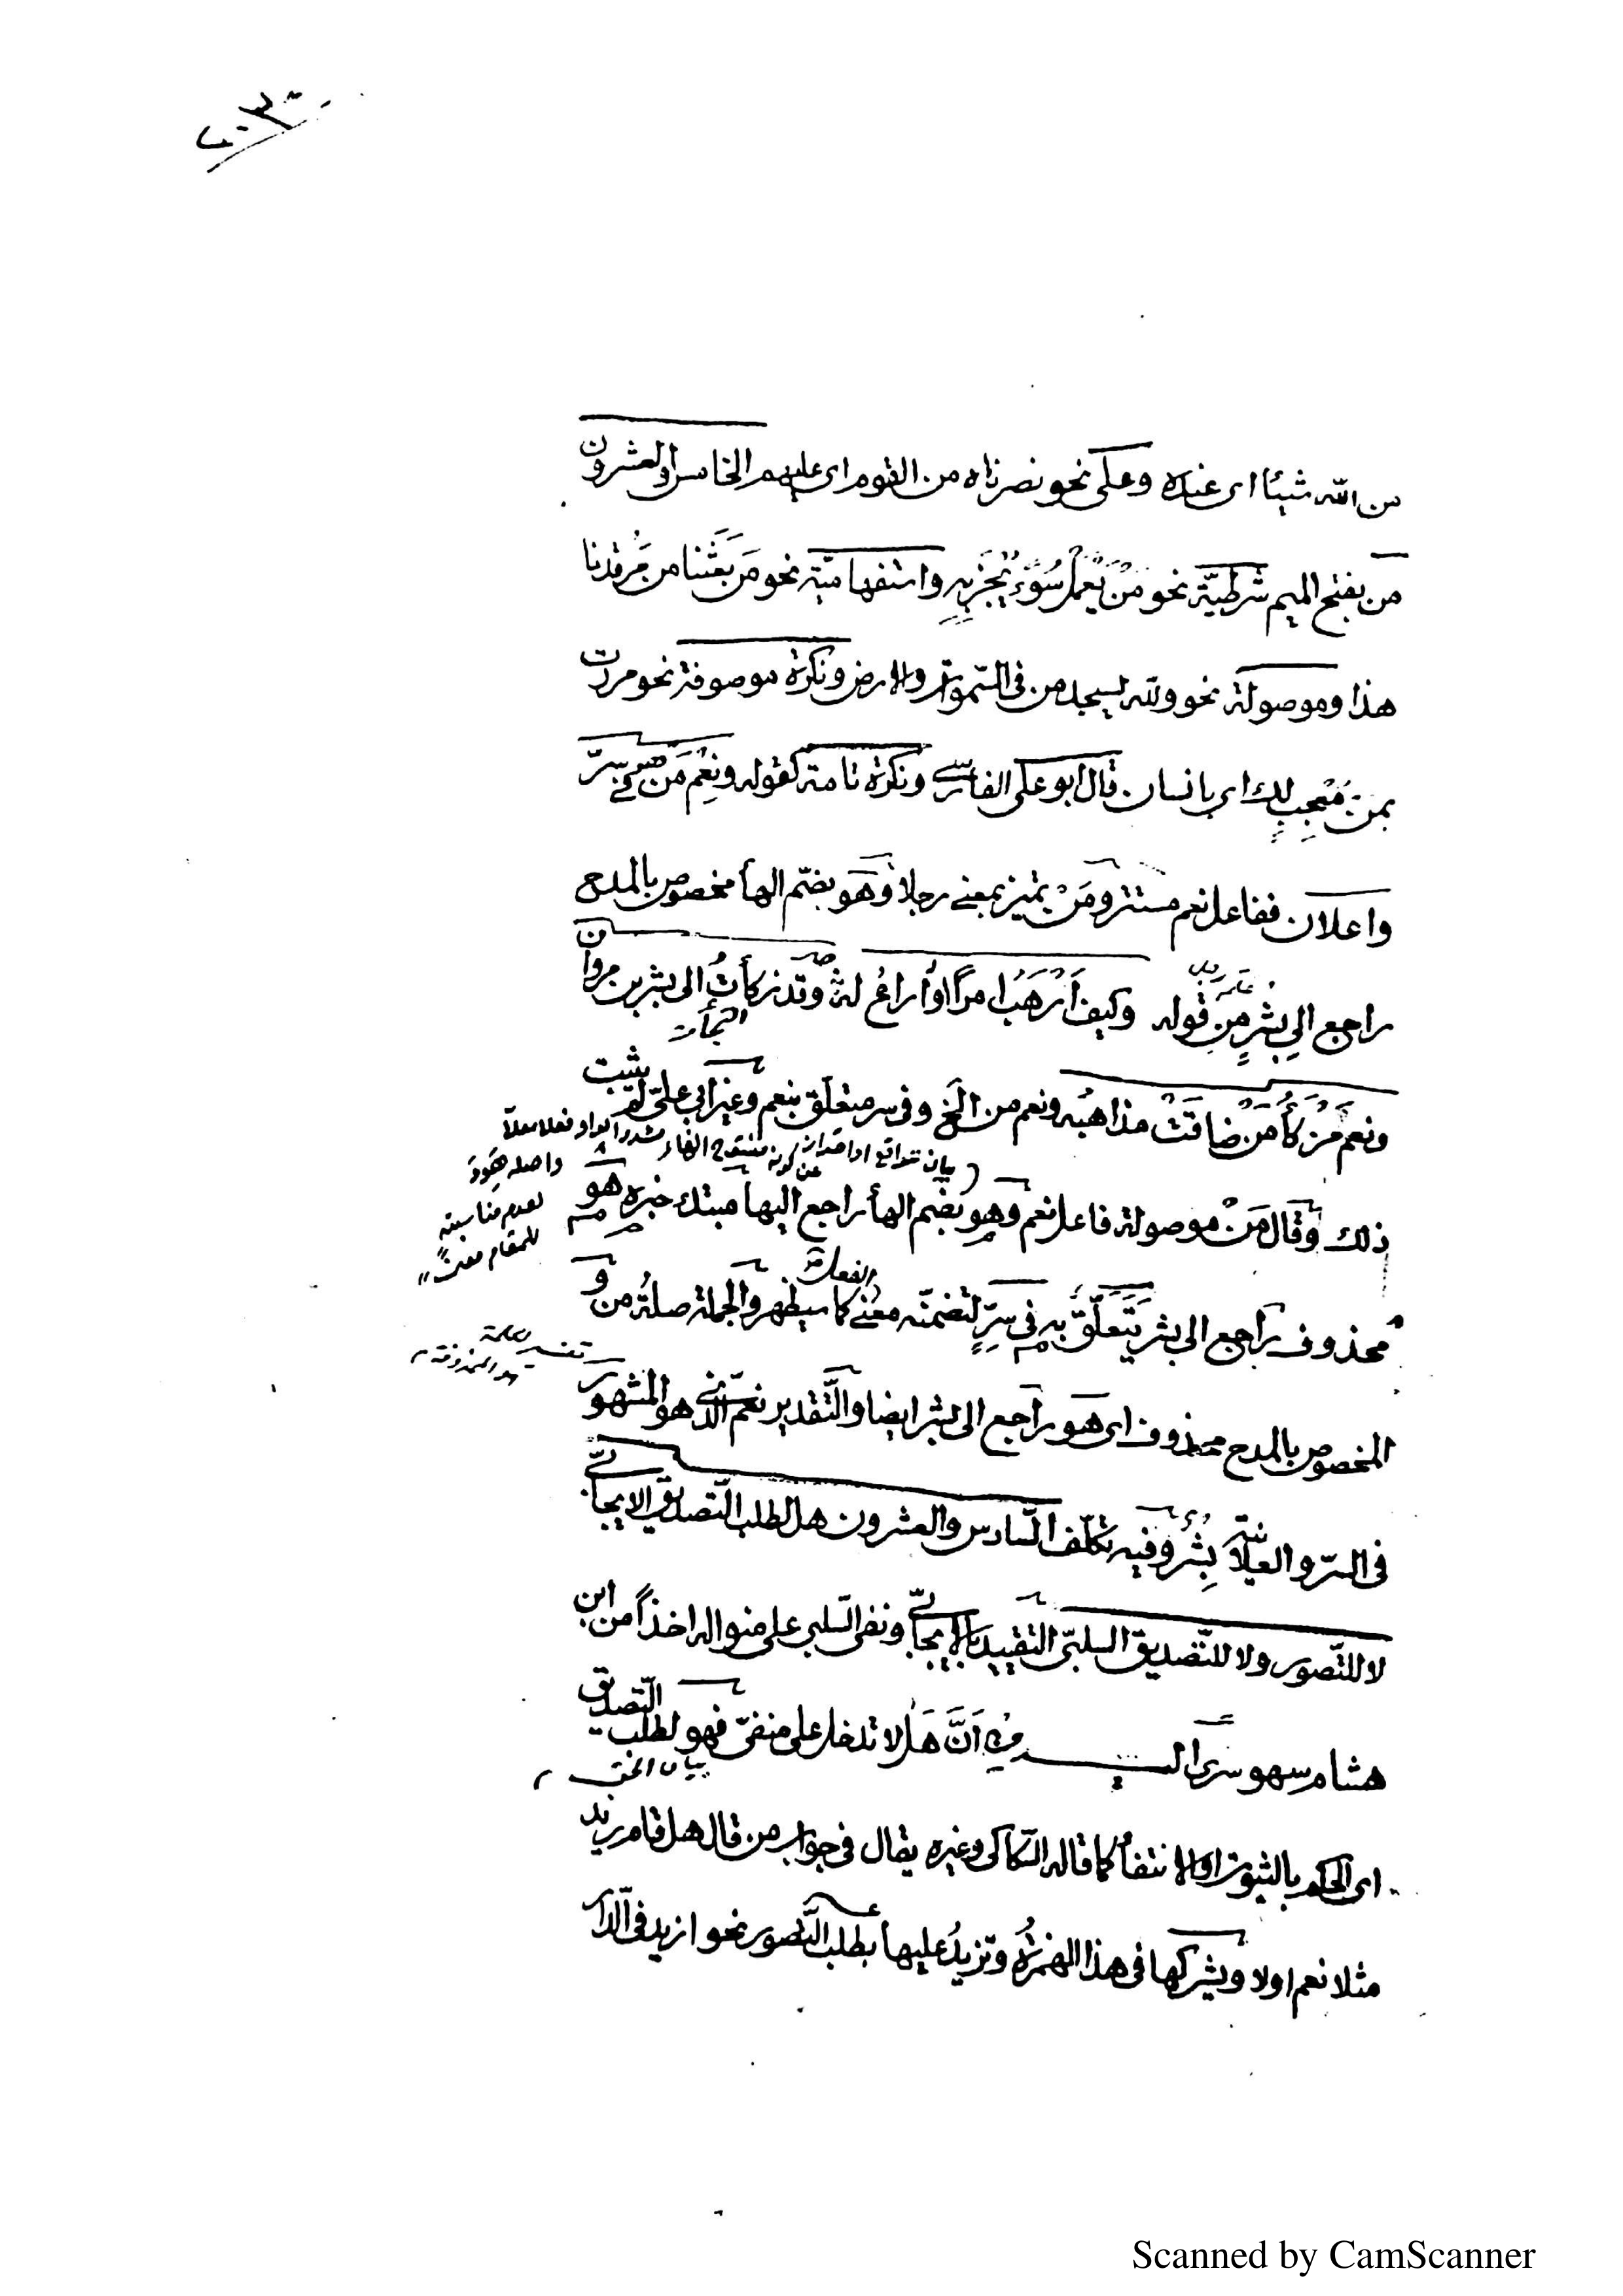 من الله شيئا اى عنده وعلى نحو نصرناه من القوم اى عليهم الخامس والعشرون
من بفتح الميم شرطيّة نحو مَنْ يَعْمَلْ سُوْءً يُجْزَ بِهِ واستفهاميّة نحو مَن بَعَثَنا من مَرقدنا
هذا وموصولة نحو ولله يسجد من فى السّموات والارض ونكرة موصوفة نحو مررت
بمن مُعْجِبٍ لك اى بانسان قال ابو على الفارسىّ ونكرة تامة كقوله ونِعْمَ مَن هو فى سِرّ
واعلان ففاعل نعم مستتر ومَنْ تميز بمعنى رجلا وهُوَ بضمّ الهاء مخصوص بالمدح
راجع الى بِشْرٍ مِن قوله وكيف أرْهَبُ امرًا او أُراعُ لهُ وقد زكأتُ الى بشر بن مروان
التجأت
ونعم مَزْكَأُ مَنْ ضاقَتْ مذاهبُه ونعم من الخ وفى سر متعلّق بنعم وغير ابى علىّ لم يثبت
ذلك وقال مَنْ موصولة فاعل نعم وهو بضم الهاء راجع اليها مبتدأ خبره هو
محذوف راجع الى بشر يتعلّق به فى سِرٍّ لتضمنّه معنى الفعل كما سيظهر والجملة صلةُ من و
المخصوص بالمدح محذوف اى هو راجع الى بشر ايضا والتّقدير نعم الّذى هو المشهور
فى السّر والعلانية بِشْر وفيه تكلّف السّادس والعشرون هل لطلب التّصديق الايجابىّ
لا للتّصور ولا للتّصديق السلبىّ التقييد بالايجابىّ ونفى السّلبى على منواله اخذاً من ابن
هشام سهو سرى اليه من أنَّ هَل لا تدخل على منفىّ فهو لطلب التّصديق
اى الحكم بالثبوت او الانتفاء كما قاله السّكاكى وغيره يقال فى جواب من قال هل قام زيد
مثلا نعم او لا ويشركها فى هذا الهمزةُ وتزيدُ عليها بطلب التّصور نحو ازيد فى الدّار
واصله هَوِوَ
لعدم مناسبته
للمقام معنىً
Scanned by CamScanner